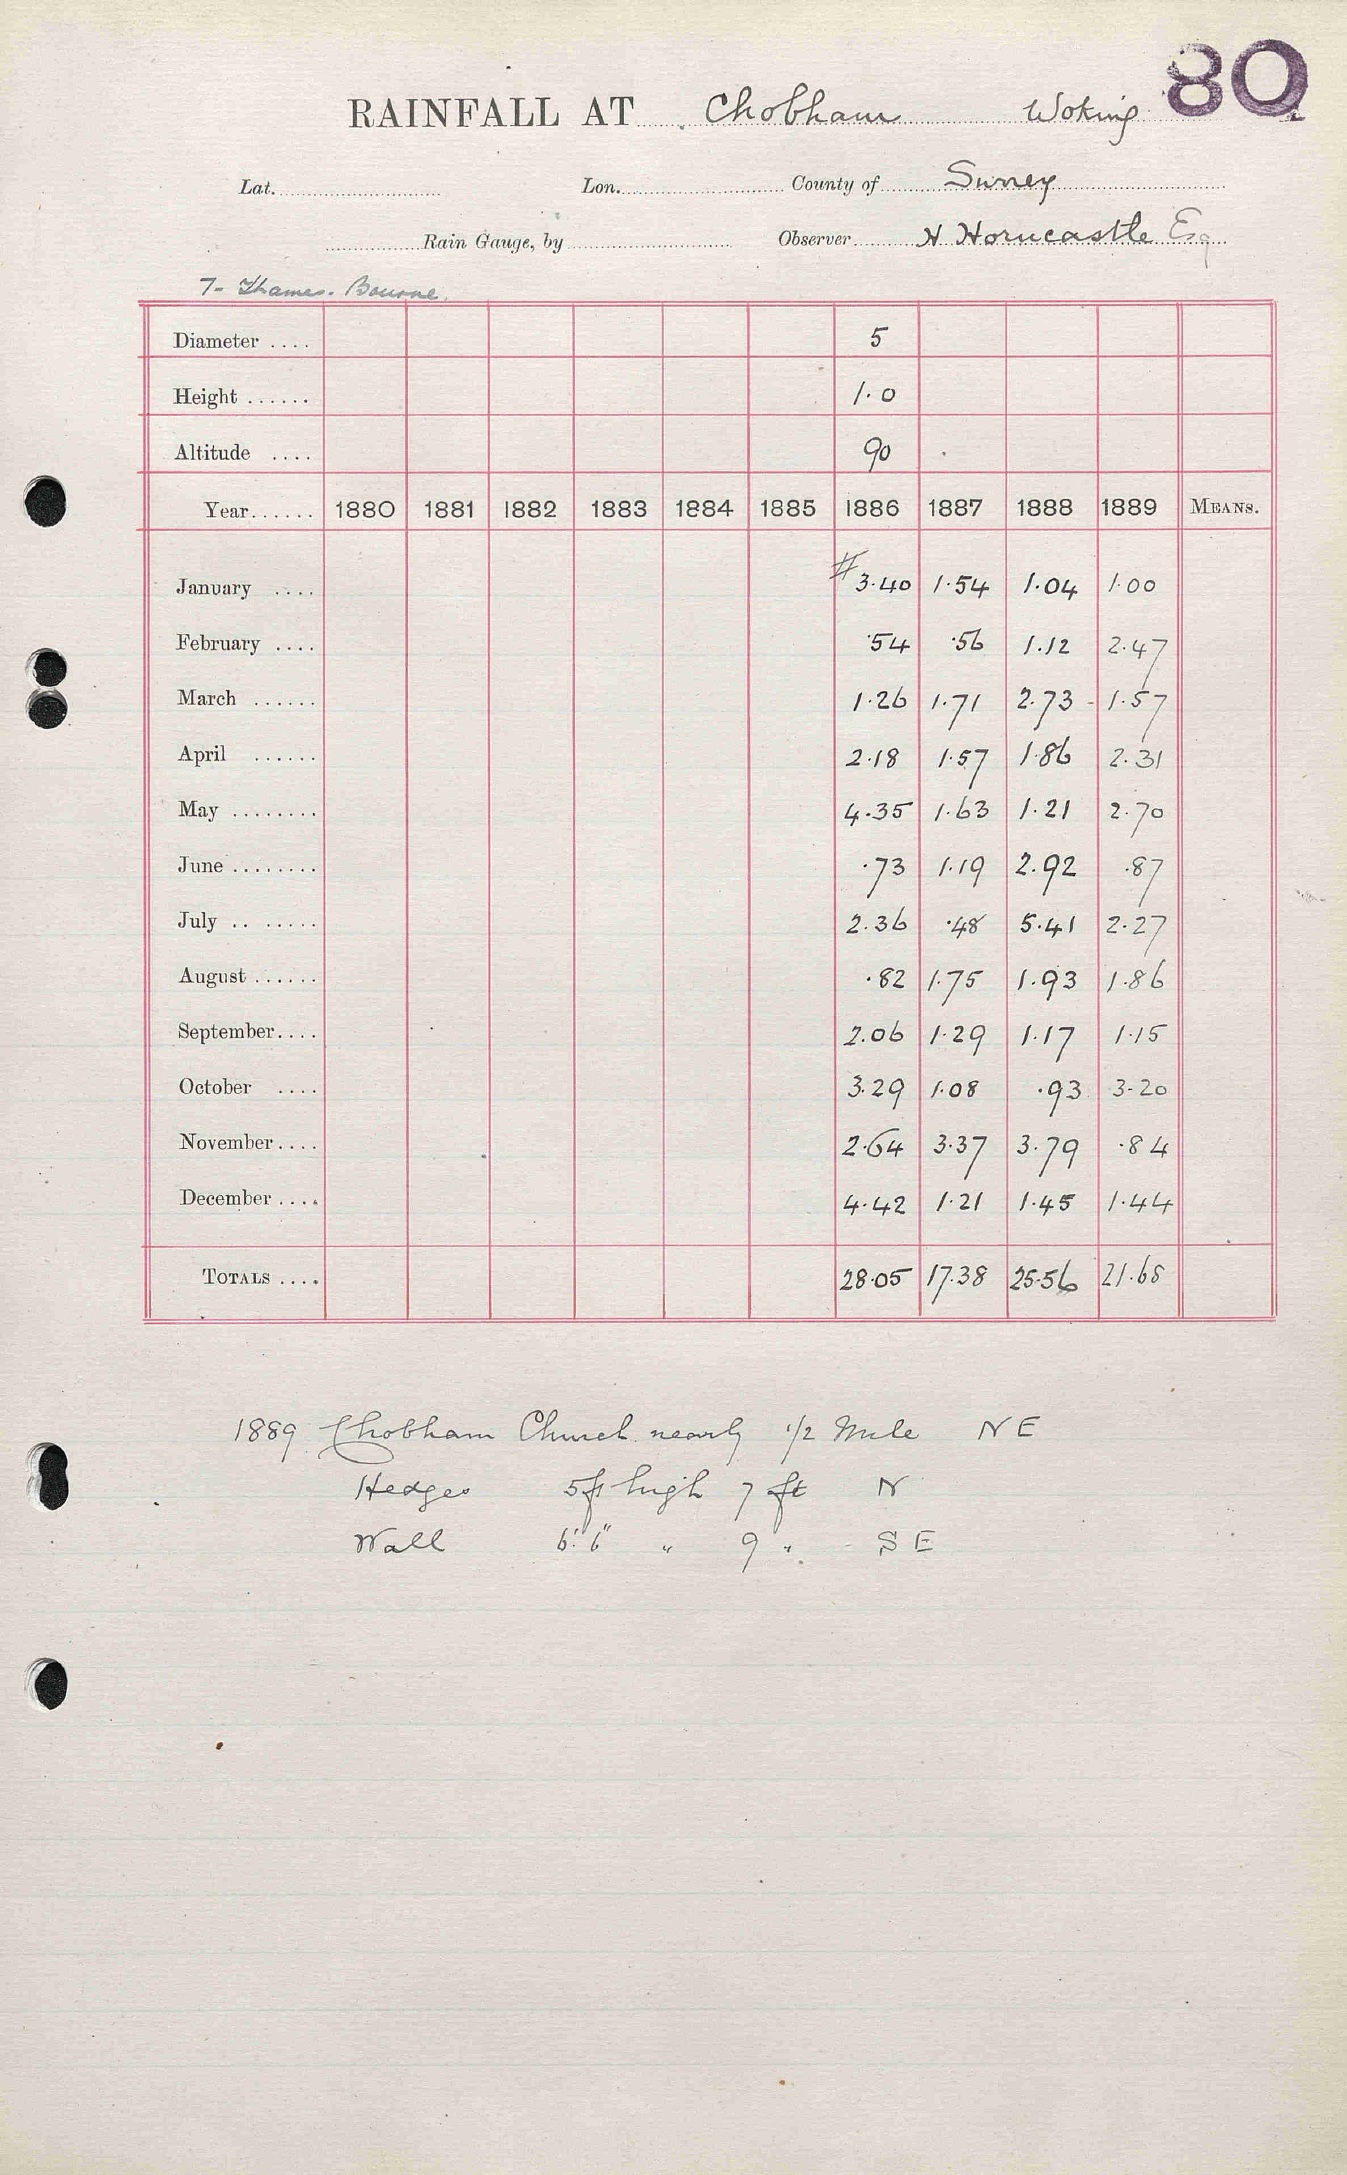 80
RAINFALL AT Chobham Woking
Lat. Lon. County of Surrey
Rain Gauge, by Observer H Horncastle Esq
7- Thames. Bourne.
Diameter .... 5
Height ...... 1.0
Altitude .... 90
Year...... 1880 1881 1882 1883 1884 1885 1886 1887 1888 1889 MEANS.
January .... # 3.40 1.54 1.04 1.00
February .... .54 .56 1.12 2.47
March ...... 1.26 1.71 2.73 - 1.57
April ...... 2.18 1.57 1.86 2.31
May ........ 4.35 1.63 1.21 2.70
June ........ .73 1.19 2.92 .87
July .. ...... 2.36 .48 5.41 2.27
August ...... .82 1.75 1.93 1.86
September.... 2.06 1.29 1.17 1.15
October .... 3.29 1.08 .93 3.20
November.... 2.64 3.37 3.79 .84
December .... 4.42 1.21 1.45 1.44
TOTALS .... 28.05 17.38 25.56 21.68
1889 Chobham Church nearly 1/2 Mile NE
Hedges 5ft high 7 ft N
Wall 6' 6" " 9 " SE